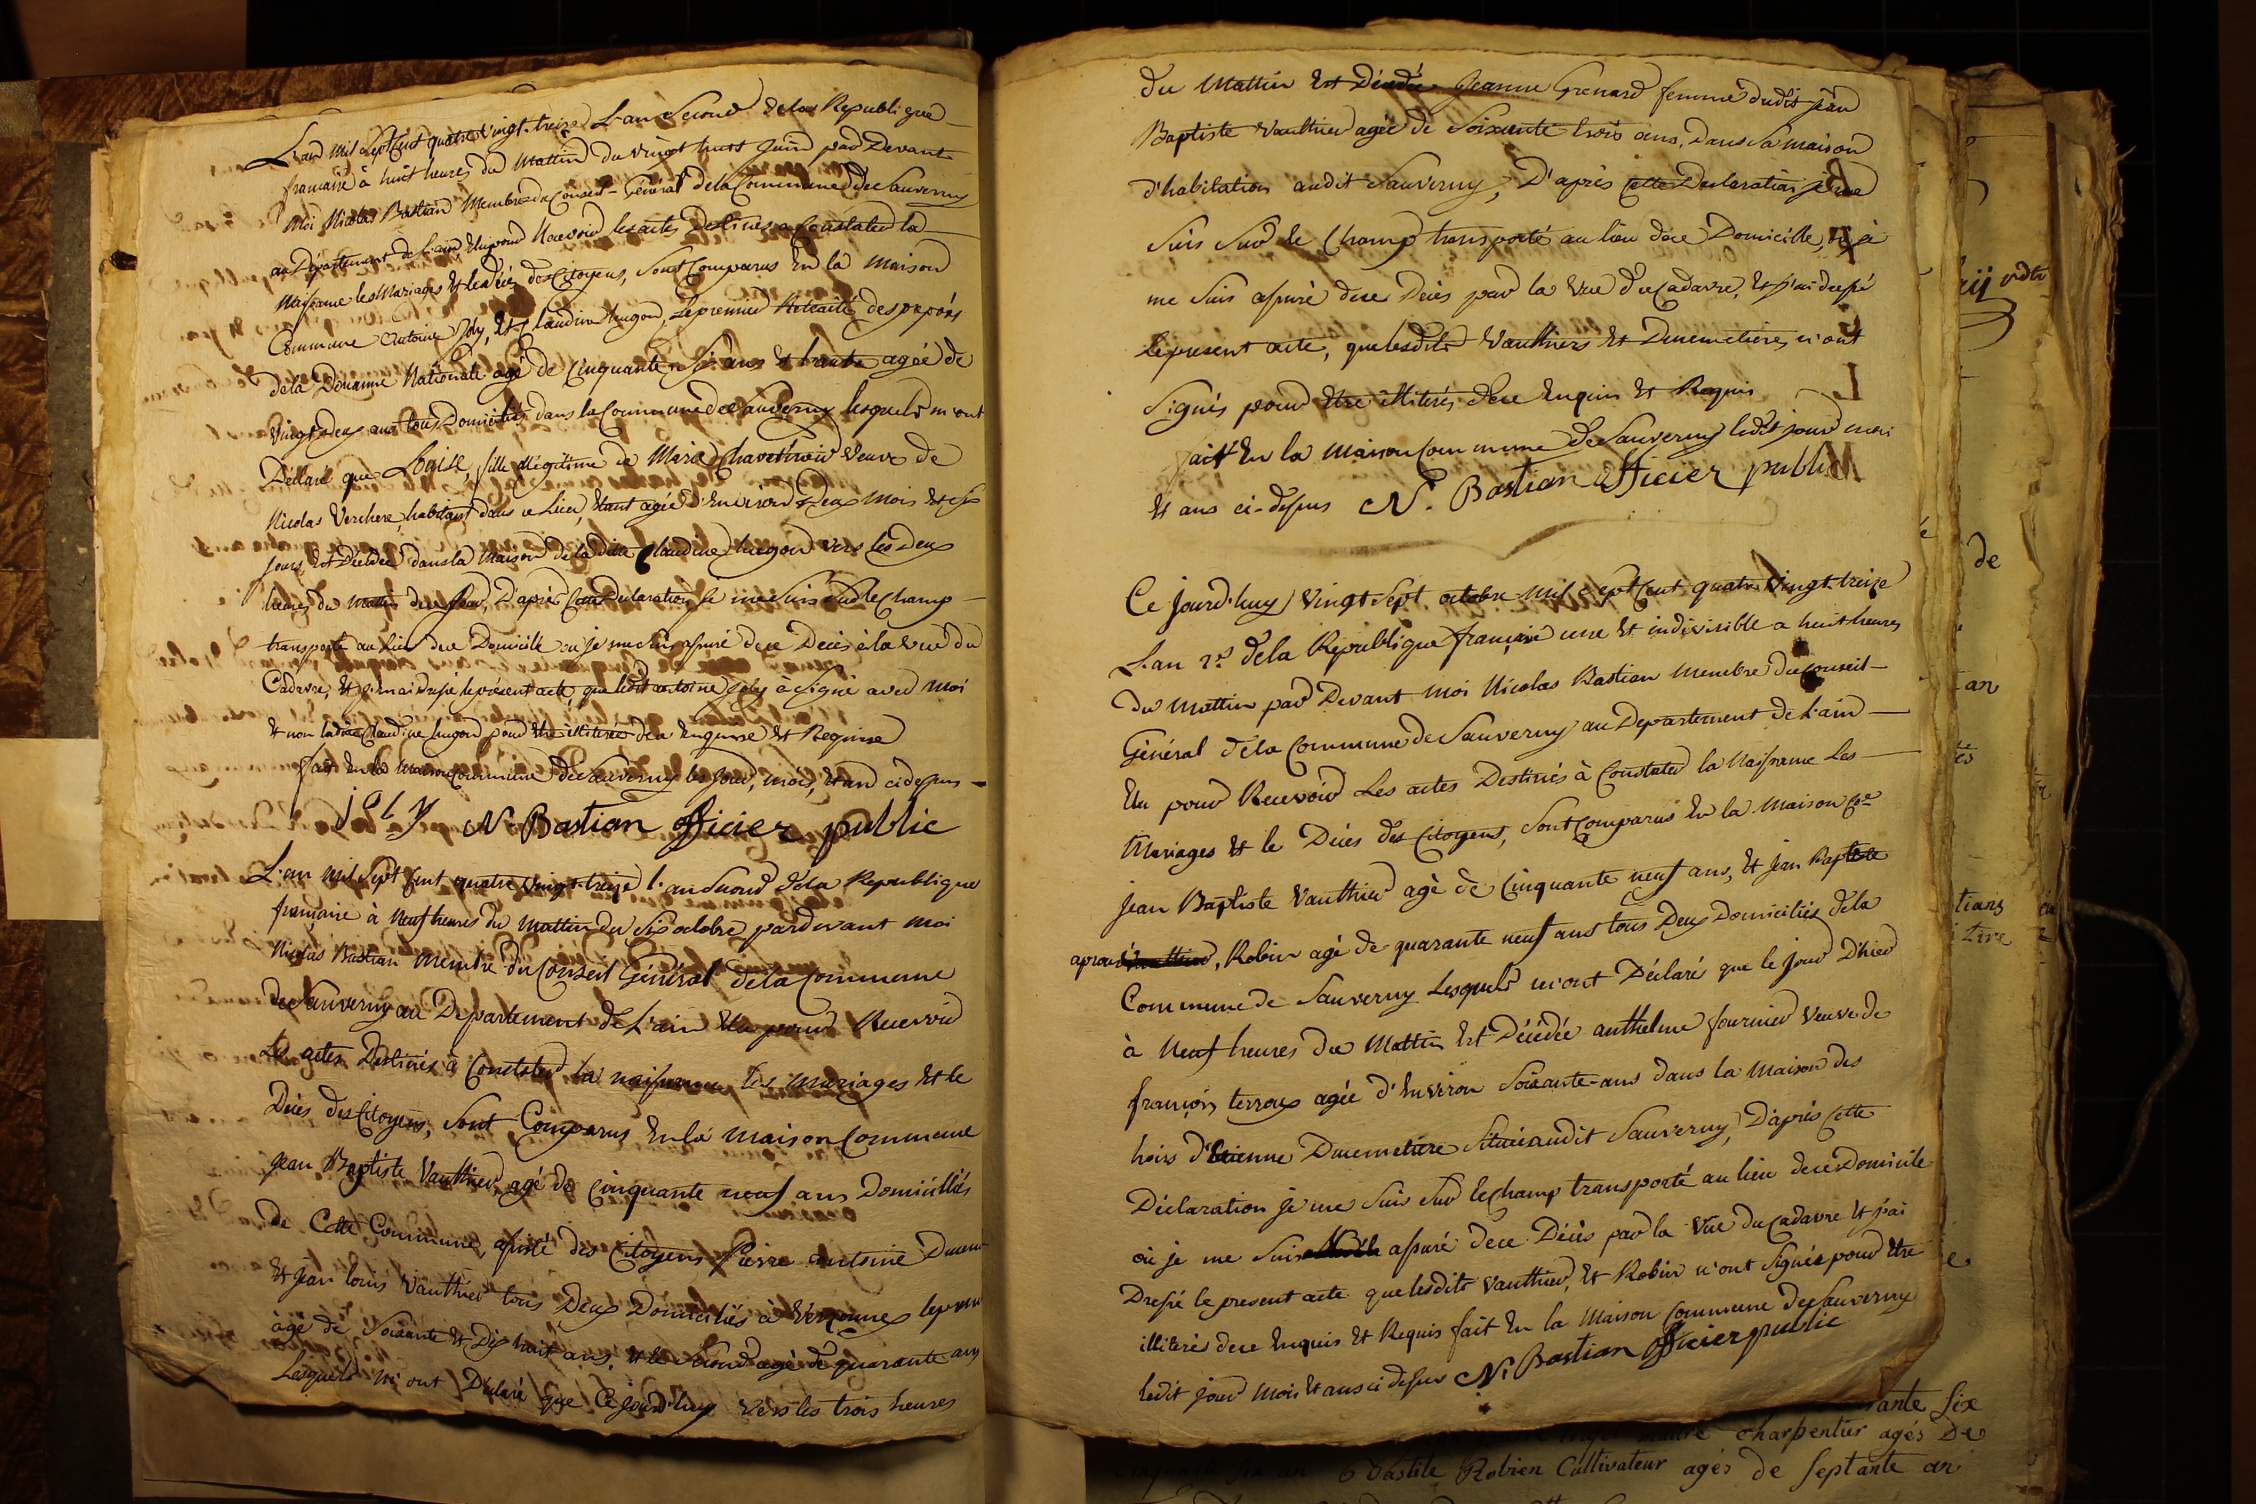 L'an mil sept Cent quatre vingt-treize L'an second de la Republique
francaise à huit heures du mattin du vingt huit Juin par Devant
Moi Nicolas Bastian Membre du Conseil-Général de la Commune de Sauverny
au Département de L'ain Elu pour Recevoir les actes Destinés a Constater la
Naissance les Mariages et le décés des Citoyens, sont Comparus En la Maison
Commune Antoine Joly, et Claudine hugon, Le premier Retraité des préposés
de la Douanne Nationale agé de Cinquante six ans et l'autre agée de
Vingt deux ans tous Domiciliés dans la Commune de Sauverny lesquels m'ont
Déclaré que Louise, fille illegitime de Marie veuve de
Nicolas Verchere habitant dans ce Lieu, Etant agée d'Environ Deux Mois et six
jours, Est Décédée dans la Maison de la ditte Claudine hugon vers les Deux
heures du mattin de ce jour, D'après Cette Declaration je me suis sur le Champ
transporté au Lieu de ce Domicille ou je me suis assuré de ce Décés à la vue du
Cadavre, et j'en ai dressé le présent acte, que ledit antoine Joly à signé avec Moi
et non ladite Claudine hugon pour Etre illiterée de ce Enquise et Requise
fait En la Maison Commune de Sauverny les Jour, mois, et an ci dessus
joly N Bastian officier public
L'an mil sept Cent quatre vingt-treize l'an second de la Republique
française à Neuf heures du mattin du six octobre pardevant moi
Nicolas Bastian Membre du Conseil Général de la Commune
de Sauverny au Departement de L'ain Elu pour Recevoir
Les actes Destinés à Constater la naissance les mariages et le
Décés des Citoyens, sont Comparus En la Maison Commune
Jean Baptiste Vauthier, agé de Cinquante neuf ans Domiciliés
de Cette Commune, assisté des Citoyens Pierre antoine
et Jean louis Vauthier tous Deux Domiciliés à Versonnex le
age de soixante et Dix huit ans, et le second agé de quarante ans
Lesquels m'ont Déclaré que Ce jourd'huy vers les trois heures
du Mattin Est Décédée Jeanne Grenard femme dudit jean
Baptiste Vauthier agée de soixante trois ans, Dans sa maison
d'habitation audit Sauverny, D'après Cette Declaration je me
suis sur le Champ transporté au lieu dece Domicille, où je
me suis assuré dece Décés par la vue du Cadavre, et j'ai dressé
le present acte, que lesdits Vauthiers et Ducemetiere, n'ont
signés pour Etre illiterés dece Enquis et Requis
fait En la Maison Commune de Sauverny ledit jour mois
et ans ci-dessus N. Bastian officier public
Ce jourd'huy vingt sept octobre mil sept Cent quatre vingt treize
L'an 2d de la Republique française une et indivisible a huit heures
du Mattin par Devant moi Nicolas Bastian Membre du conseil
Général de la Commune de Sauverny au Departement de L'ain
Elu pour Recevoir Les actes Destinés à Constater la Naissance Les
Mariages et le Décés des Citoyens, sont Comparus En la Maison Cne
Jean Baptiste Vauthier agé de Cinquante neuf ans, et Jean Baptiste
Robin agé de quarante neuf ans tous Deux Domiciliés de la
Commune de Sauverny Lesquels m'ont Déclaré que le jour D'hier
à Neuf heures du Mattin Est Décédée anthelme fournier veuve de
françois terroux agée d'Environ soixante-ans dans la Maison des
hoirs d'Etienne Ducemetiere située audit Sauverny, D'après Cette
Déclaration je me suis sur le Champ transporté au lieu de ce Domicile
où je me suis assuré dece Décés par la vue du Cadavre et j'ai
Dressé le present acte que lesdits Vauthier, et Robin n'ont signés pour Etre
illiteré dece Enquis et Requis fait En la Maison Commune de Sauverny
ledit jour Mois et ans ci dessus N. Bastian officier public
de
an
charpentier agés De
Robien Cultivateur agés de septante an